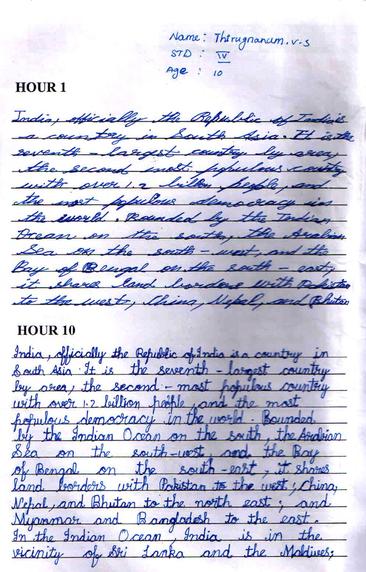 Name: Thirugnanum.v-s
STD : IV
Age : 10
HOUR 1
India, officially the Republic of India is
a country in South Asia. It is the
seventh-largest country by area,
the second most populous country
with over 1.2 billion people, and
the most populous democracy in
the world. Bounded by the Indian
Ocean on the south, the Arabian
Sea on the south-west, and the
Bay of Bengal on the south-east,
it shares land borders with Pakistan
to the west, China, Nepal, and Bhutan
HOUR 10
India, officially the Republic of India is a country in
South Asia. It is the seventh-largest country
by area, the second-most populous country
with over 1.2 billion people, and the most
populous democracy in the world. Bounded
by the Indian Ocean on the south, the Arabian
Sea on the south-west, and the Bay
of Bengal on the south-east, it shares
land borders with Pakistan to the west; China,
Nepal, and Bhutan to the north east; and
Myanmar and Bangladesh to the east.
In the Indian Ocean India is in the
vicinity of Sri Lanka and the Maldives;